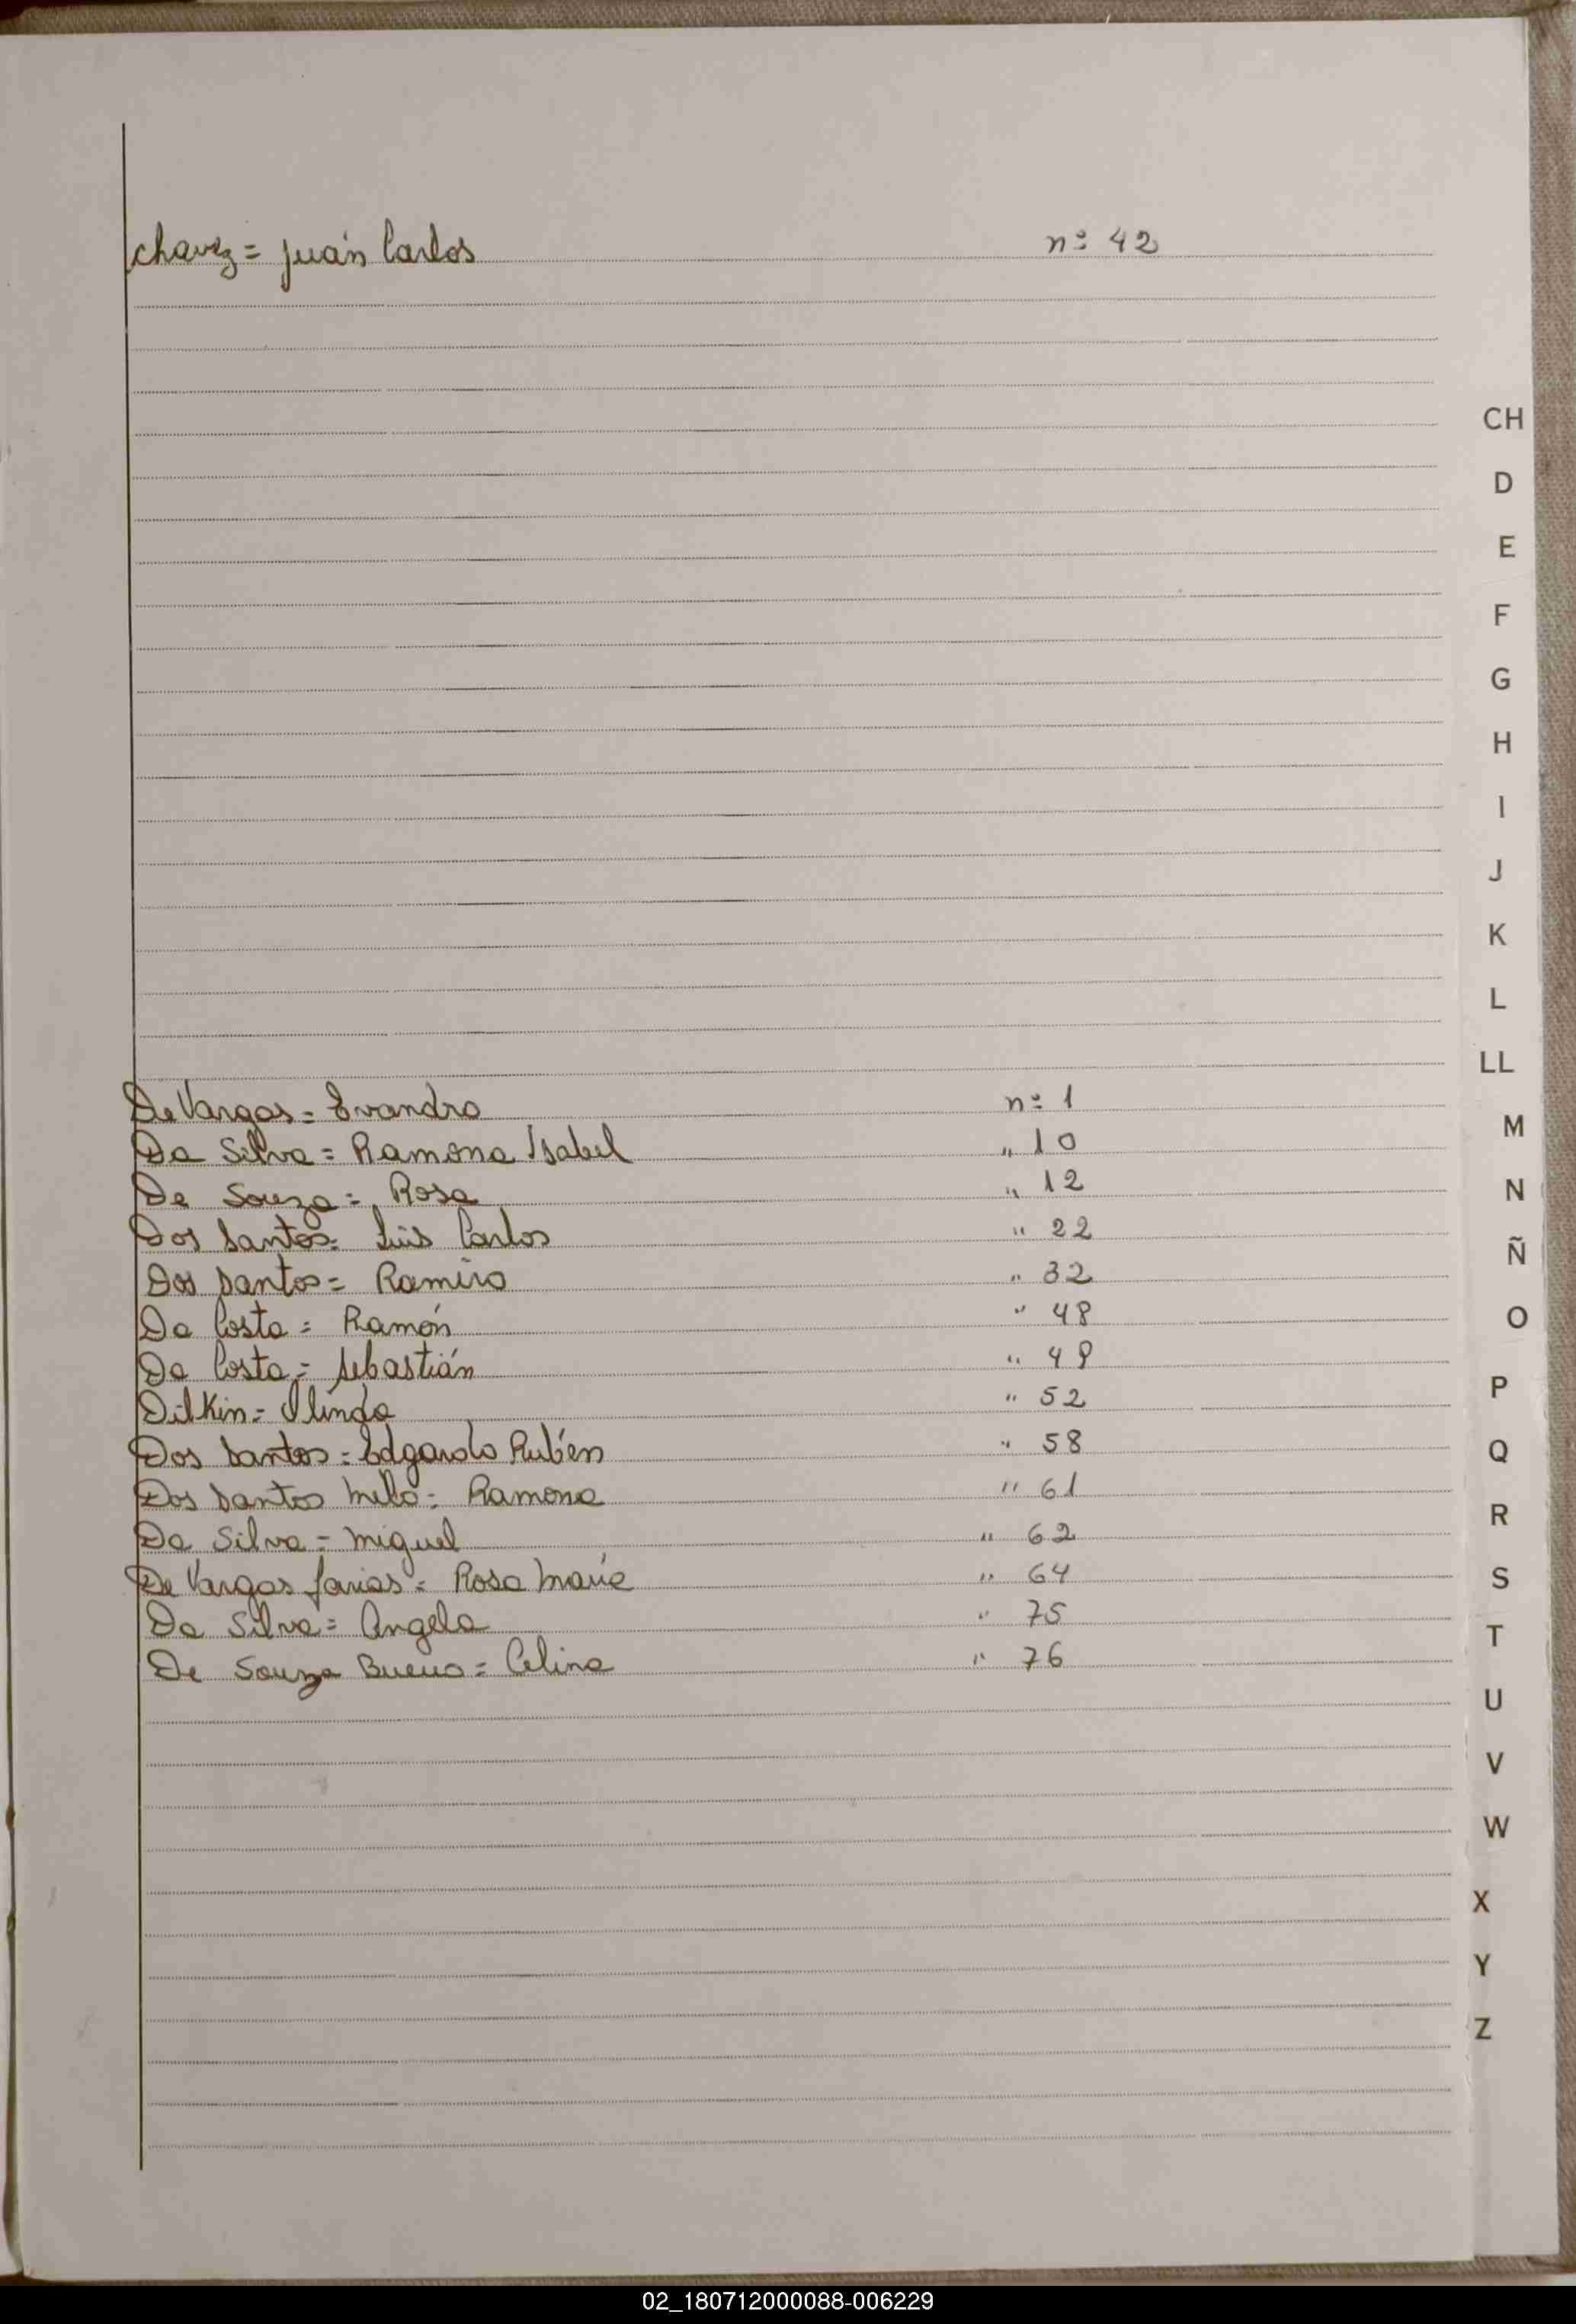 Chavez = Juán Carlos nº 42
De Vargas = Evandro nº 1
Da Silva = Ramona Isabel " 10
De Souza = Rosa " 12
Dos Santos = Luis Carlos " 22
Dos Santos = Ramiro " 32
Da Costa = Ramón " 48
Da Costa = Sebastián " 49
Dilkin = Olinda " 52
Dos Santos = Edgardo Rubén " 58
Dos Santos Mello = Ramona " 61
Da Silva = Miguel " 62
De Vargas Farias = Rosa María " 64
Da Silva = Angela " 75
De Souza Bueno = Celina " 76
CH
D
E
F
G
H
I
J
K
L
LL
M
N
Ñ
O
P
Q
R
S
T
U
V
W
X
Y
Z
02_180712000088-006229